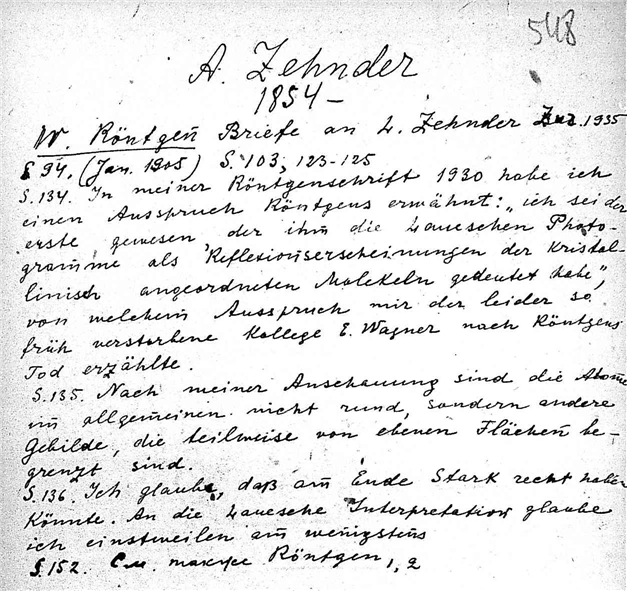 548
A. Zehnder
1854 –
W. Röntgen Briefe an L. Zehnder Zür. 1935
S 94. (Jan. 1905) S. 103, 123-125
S. 134. In meiner Röntgenschrift 1930 habe ich
einen Ausspruch Röntgens erwähnt: „ich sei der
erste gewesen, der ihm die Laueschen Photo-
gramme als "Reflexionserscheinungen der kristal-
linisch angeordneten Molekeln gedeutet habe",
von welchem Ausspruch mir der leider so
früh verstorbene Kollege E. Wagner nach Röntgens
Tod erzählte.
S. 135. Nach meiner Anschauung sind die Atome
im allgemeinen nicht rund, sondern andere
Gebilde, die teilweise von ebenen Flächen be-
grenzt sind.
S. 136. Ich glaube, daß am Ende Stark recht haben
könnte. An die Lauesche Interpretation glaube
ich einstweilen am wenigstens
S. 152. См. также Röntgen 1, 2